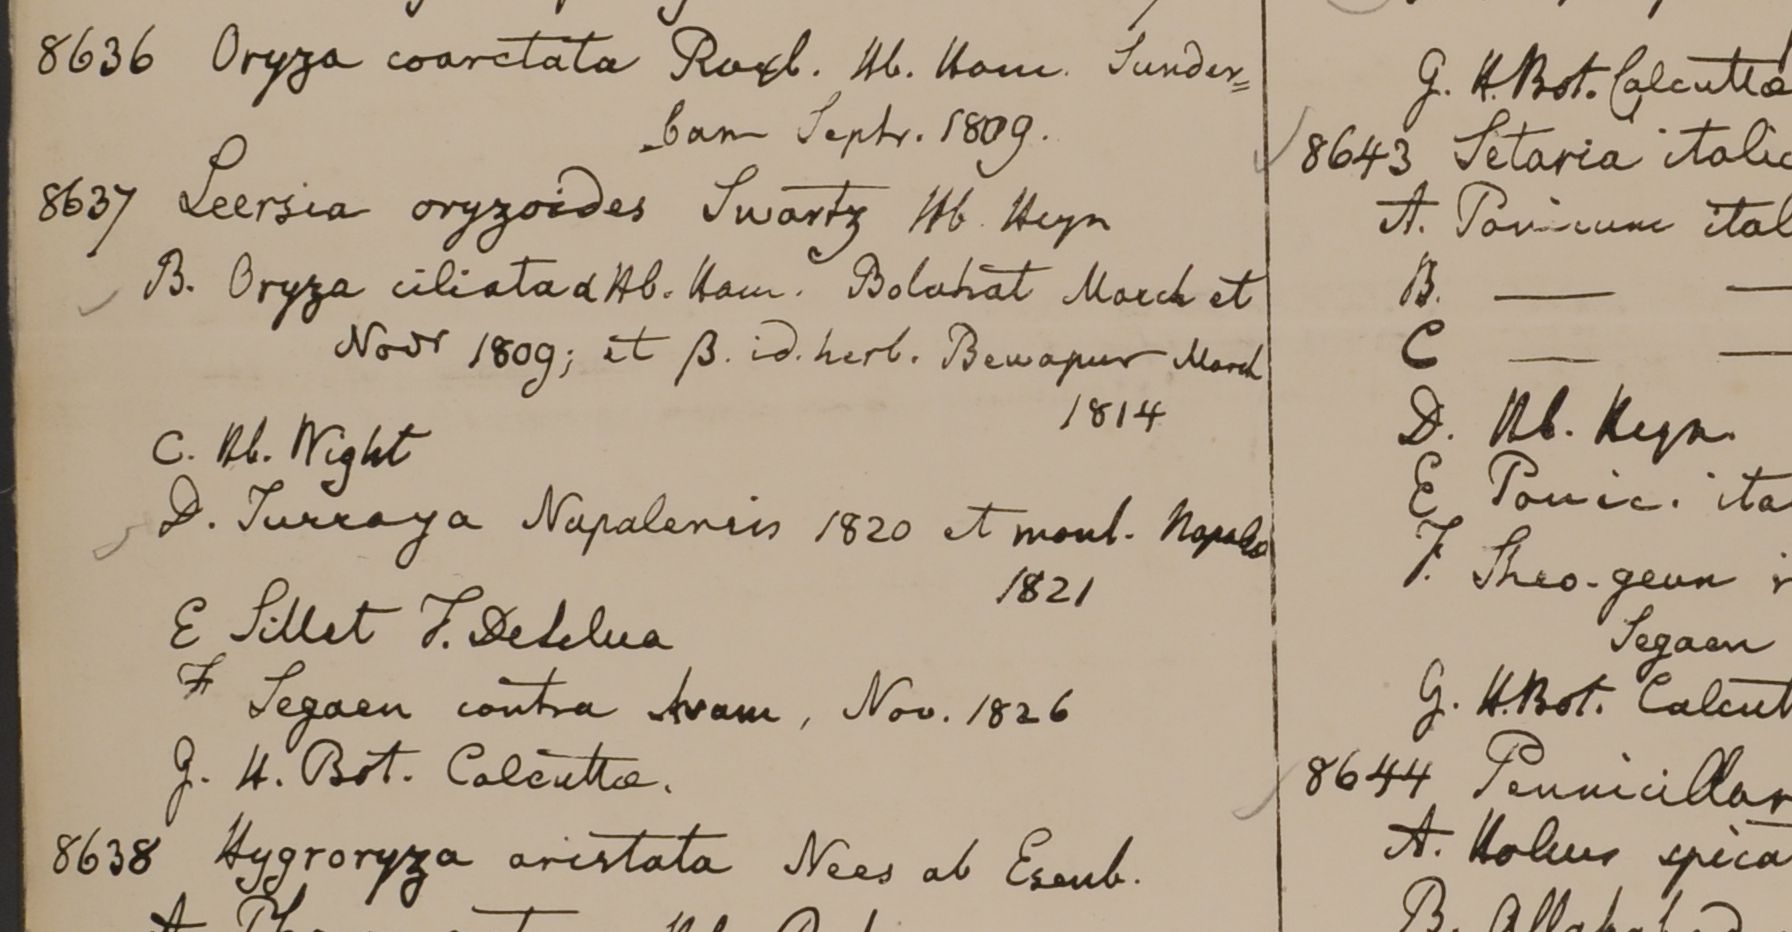 8636 Oryza coarctata Roxb. Hb. Ham. Sunder=
bam Septr. 1809.
8637 Leersia oryzoides Swartz Hb. Heyn
B. Oryza ciliata α Hb. Ham. Bolahat March et
Novr 1809; et β. id. herb. Bewapur March
1814
C. Hb. Wight
D. Turraya Napalensis 1820 et mont. Napal
1821
E Sillet F. De Silva
F Segaen contra Avam, Nov. 1826
G. H. Bot. Calcuttae.
8638 Hygroryza aristata Nees ab Esenb.
A.
G. H. Bot. Calcutta
8643 Setaria italic
A. Panicum ital
B. — —
C — —
D. Hb. Heyn.
E Panic. ita
F. Sheo-geun
Segaen
G. H. Bot. Calcut
8644 Pennicillar
A. Holcus spica
B. Allahabad